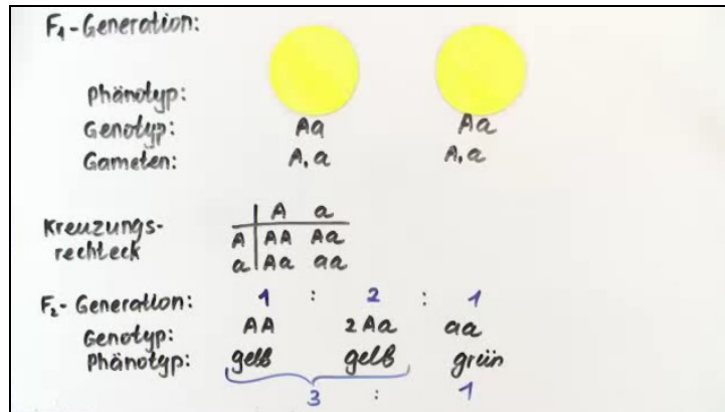 F₁-Generation:
Phänotyp:
Genotyp: Aa Aa
Gameten: A,a A,a
Kreuzungs-
rechteck
A a
A AA Aa
a Aa aa
F₂-Generation: 1 : 2 : 1
Genotyp: AA 2Aa aa
Phänotyp: gelb gelb grün
3 : 1